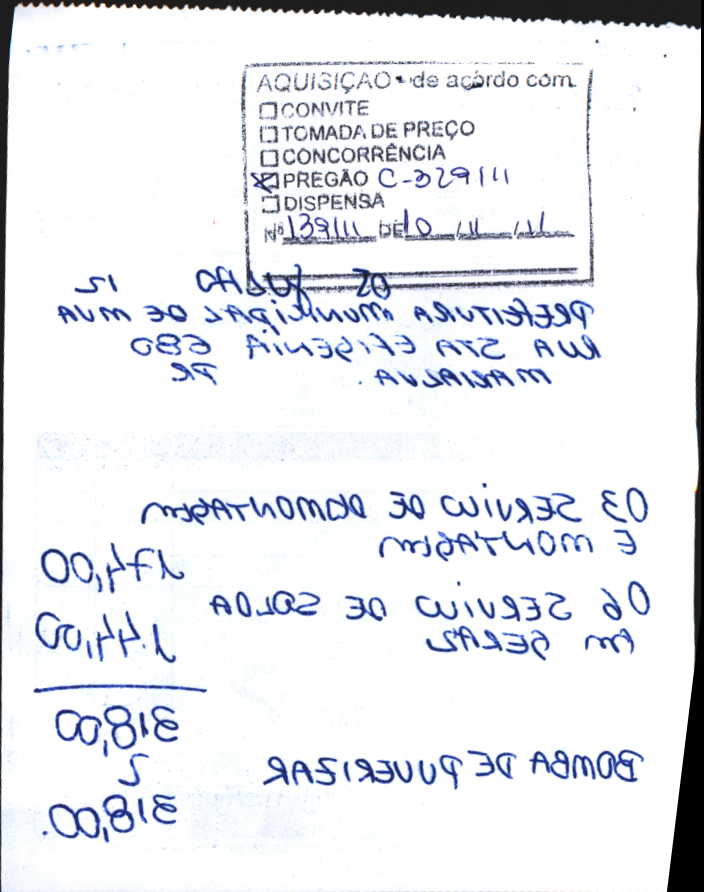 AQUISIÇÃO - de acôrdo com
CONVITE
TOMADA DE PREÇO
CONCORRÊNCIA
PREGÃO C-329/11
DISPENSA
Nº 139/11 DE 10 / 11 / 11
02 JULHO 12
PREFEITURA MUNICIPAL DE MVA
RUA STA EFIGENIA 680
MARIALVA. PR
03 SERVIÇO DE DEMONTAGEM
E MONTAGEM
174,00
06 SERVIÇO DE SOLDA
EM GERAL
144,00
318,00
BOMBA DE PUVERIZAR
318,00.